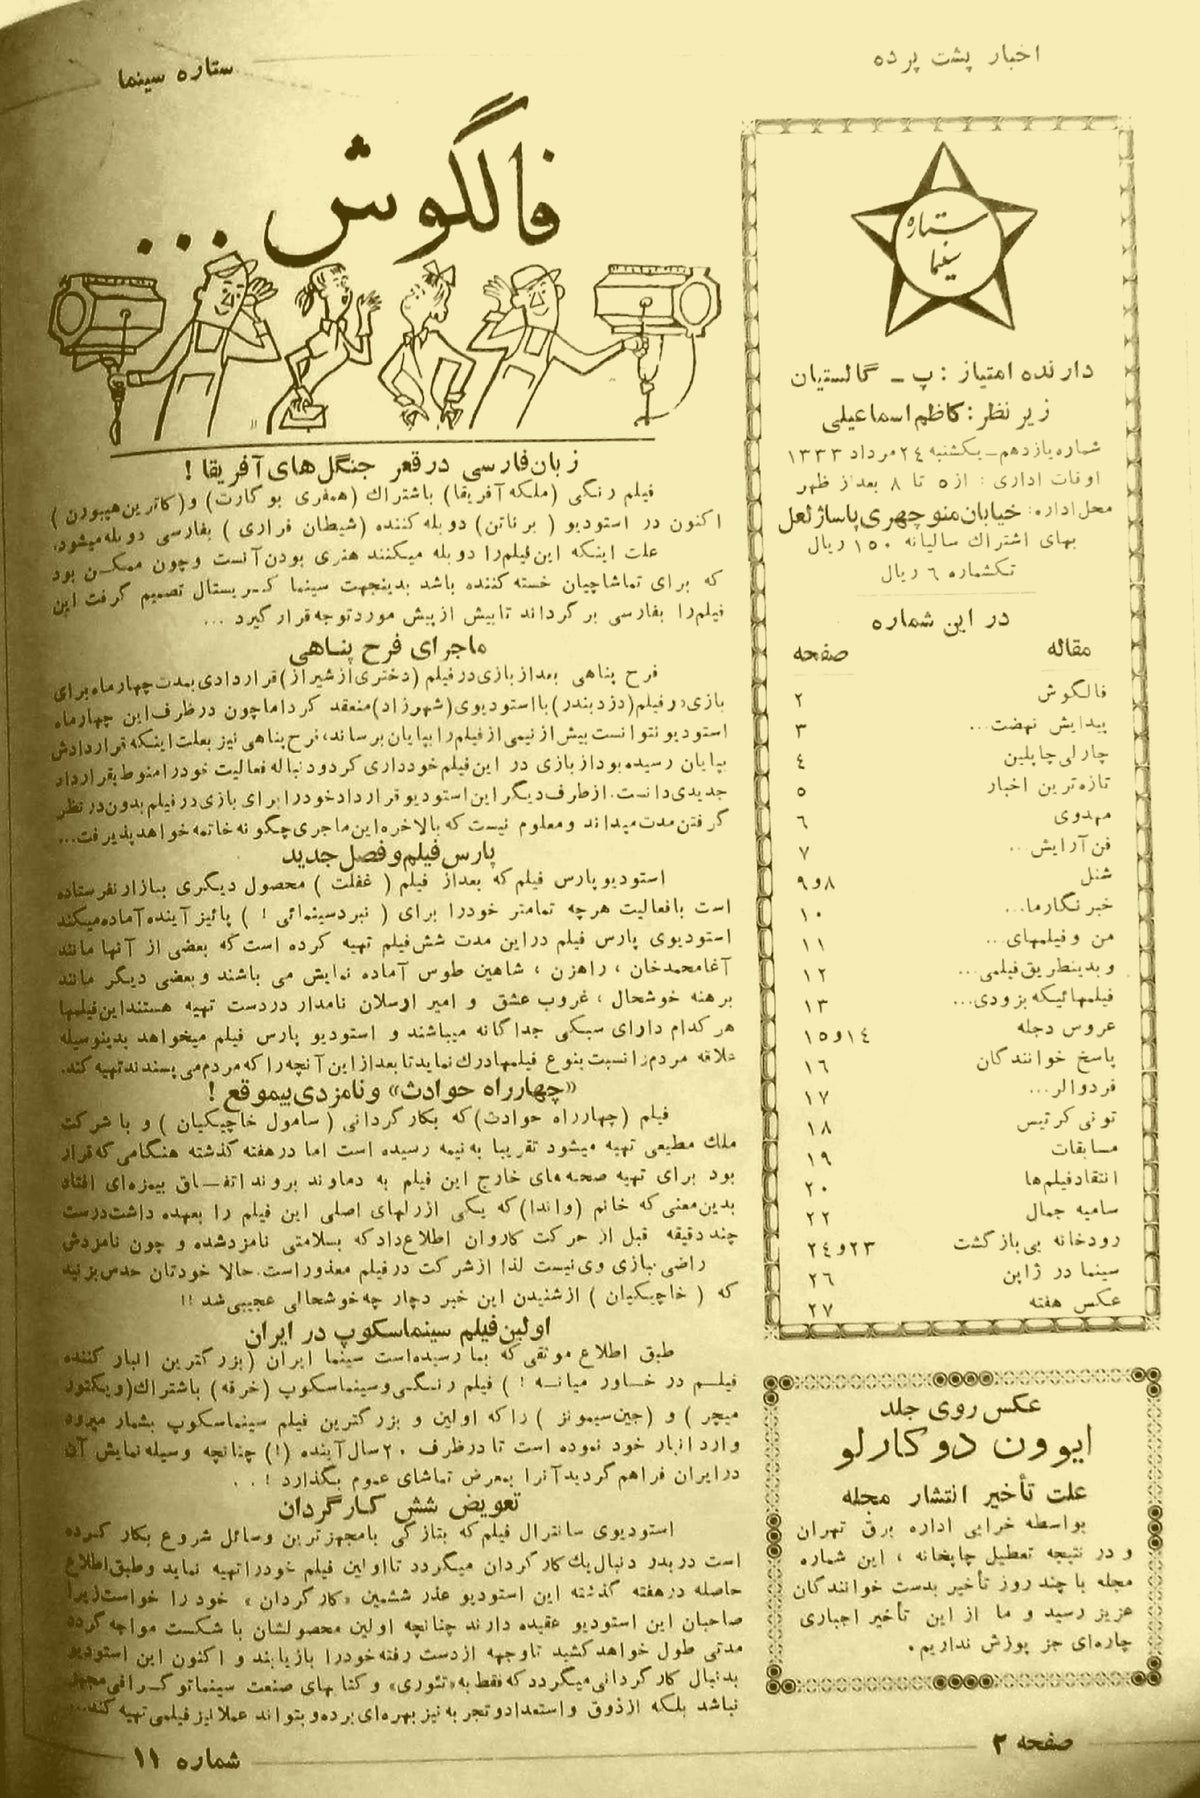 اخبار پشت پرده
ستاره سینما
ستاره
سینما
دارنده امتیاز : پ - گالستیان
زیر نظر : کاظم اسماعیلی
شماره یازدهم - یکشنبه ۲۴ مرداد ۱۳۳۳
اوقات اداری : از ۵ تا ۸ بعد از ظهر
محل اداره : خیابان منوچهری پاساژ لعل
بهای اشتراك سالیانه ۱۵۰ ریال
تکشماره ۶ ریال
در این شماره
مقاله صفحه
فالگوش ۲
پیدایش نهضت... ۳
چارلی چاپلین ۴
تازه ترین اخبار ۵
مهدوی ۶
فن آرایش... ۷
شنل ۸و۹
خبرنگارما... ۱۰
من وفیلمهای... ۱۱
وبدینطریق فیلمی... ۱۲
فیلمهائیکه بزودی... ۱۳
عروس دجله ۱۴و۱۵
پاسخ خوانندگان ۱۶
فردوالر... ۱۷
تونی کرتیس ۱۸
مسابقات ۱۹
انتقاد فیلم ها ۲۰
سامیه جمال ۲۲
رودخانه بی بازگشت ۲۳و۲۴
سینما در ژاپن ۲۶
عکس هفته ۲۷
عکس روی جلد
ایوون دوکارلو
علت تأخیر انتشار مجله
بواسطه خرابی اداره برق تهران
و در نتیجه تعطیل چاپخانه ، این شماره
مجله با چند روز تأخیر بدست خوانندگان
عزیز رسید و ما از این تأخیر اجباری
چاره ای جز پوزش نداریم.
فالگوش ...
زبان فارسی در قعر جنگل های آفریقا !
فیلم رنگی (ملکه آفریقا) باشتراك (همفری بوگارت) و(کاترین هیپورن)
اکنون در استودیو ( برناتن) دوبله کننده (شیطان فراری ) بفارسی دوبله میشود.
علت اینکه این فیلم را دوبله میکنند هنری بودن آنست وچون ممکن بود
که برای تماشاچیان خسته کننده باشد بدینجهت سینما کریستال تصمیم گرفت این
فیلم را بفارسی برگرداند تابیش از پیش مورد توجه قرار گیرد ...
ماجرای فرح پناهی
فرح پناهی بعداز بازی در فیلم (دختری از شیراز) قراردادی بمدت چهارماه برای
بازی در فیلم (دزد بندر) بااستودیوی (شهرزاد) منعقد کرد اما چون در ظرف این چهارماه
استودیو نتوانست بیش از نیمی از فیلم را بپایان برساند، فرح پناهی نیز بعلت اینکه قراردادش
بپایان رسیده بود از بازی در این فیلم خودداری کرد ودنباله فعالیت خود را منوط بقرارداد
جدیدی دانست. از طرف دیگر این استودیو قرارداد خود را برای بازی در فیلم بدون در نظر
گرفتن مدت میداند ومعلوم نیست که بالاخره این ماجری چگونه خاتمه خواهد پذیرفت...
پارس فیلم وفصل جدید
استودیو پارس فیلم که بعداز فیلم ( غفلت ) محصول دیگری ببازار نفرستاده
است بافعالیت هرچه تمامتر خودرا برای ( نبرد سینمائی ! ) پائیز آینده آماده میکند
استودیوی پارس فیلم دراین مدت شش فیلم تهیه کرده است که بعضی از آنها مانند
آغامحمدخان ، راهزن ، شاهین طوس آماده نمایش می باشند و بعضی دیگر مانند
برهنه خوشحال ، غروب عشق و امیر ارسلان نامدار دردست تهیه هستند این فیلمها
هرکدام دارای سبکی جداگانه میباشند و استودیو پارس فیلم میخواهد بدینوسیله
علاقه مردم را نسبت بنوع فیلمها درك نماید تا بعد از این آنچه را که مردم می پسندند تهیه کند.
«چهارراه حوادث» ونامزدی بیموقع !
فیلم (چهارراه حوادث) که بکارگردانی ( ساموئل خاچیکیان ) و با شرکت
ملك مطیعی تهیه میشود تقریبا به نیمه رسیده است اما در هفته گذشته هنگامی که قرار
بود برای تهیه صحنه های خارج این فیلم به دماوند بروند اتفاق بیمزه ای افتاد
بدین معنی که خانم (واندا) که یکی از رلهای اصلی این فیلم را بعهده داشت درست
چند دقیقه قبل از حرکت کاروان اطلاع داد که بسلامتی نامزد شده و چون نامزدش
راضی ببازی وی نیست لذا از شرکت در فیلم معذور است. حالا خودتان حدس بزنید
که ( خاچیکیان ) از شنیدن این خبر دچار چه خوشحالی عجیبی شد !!
اولین فیلم سینماسکوپ در ایران
طبق اطلاع موثقی که بما رسیده است سینما ایران (بزرگترین انبار کننده
فیلم در خاور میانه ! ) فیلم رنگی وسینماسکوپ (خرقه) باشتراك (ویکتور
میچر ) و (جین سیمونز ) را که اولین و بزرگترین فیلم سینماسکوپ بشمار میرود
وارد انبار خود نموده است تا در ظرف ۲۰ سال آینده (!) چنانچه وسیله نمایش آن
در ایران فراهم گردید آنرا بمعرض تماشای عموم بگذارد ! ..
تعویض شش کارگردان
استودیوی سانترال فیلم که بتازگی بامجهزترین وسائل شروع بکار کرده
است دربدر دنبال یك کارگردان میگردد تا اولین فیلم خودرا تهیه نماید وطبق اطلاع
حاصله در هفته گذشته این استودیو عذر ششمین «کارگردان» خود را خواست زیرا
صاحبان این استودیو عقیده دارند چنانچه اولین محصولشان با شکست مواجه گردد
مدتی طول خواهد کشید تا وجهه از دست رفته خودرا بازیابند و اکنون این استودیو
بدنبال کارگردانی میگردد که فقط به «تئوری» و کتابهای صنعت سینماتوگرافی مجهز
نباشد بلکه از ذوق و استعداد و تجربه نیز بهره ای برده و بتواند عملا نیز فیلمی تهیه کند...
صفحه ۲
شماره ۱۱